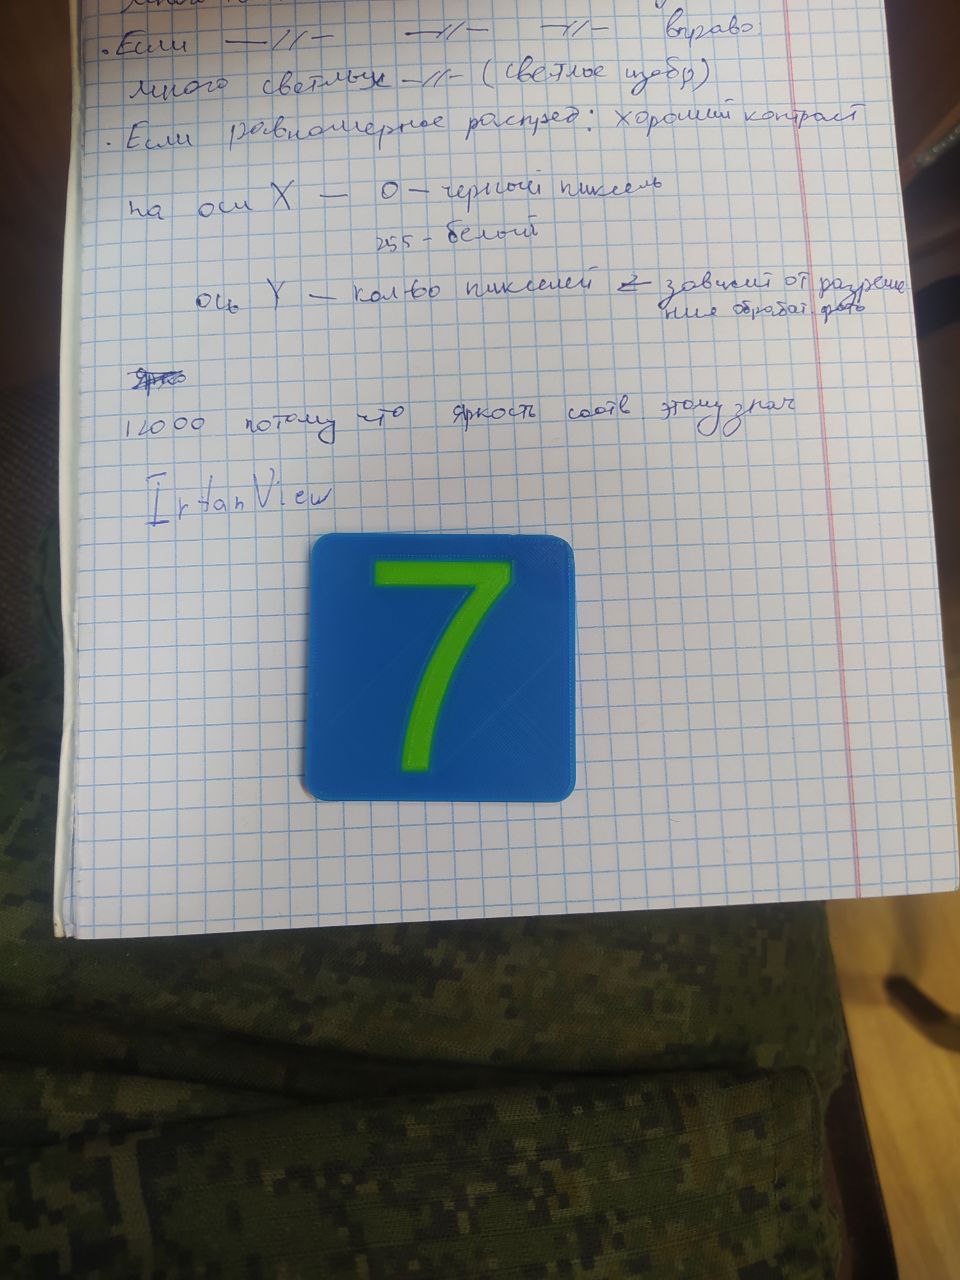 . Если —//— —//— —//— вправо
много светлых —//— (светлое изобр)
. Если равномерное распред: хороший контраст
на оси X — 0 – черный пиксель
255 – белый
ось Y — кол-во пикселей зависит от разреше
ния обработ. фото
12000 потому что яркость соотв этому знач
IrfanView
7